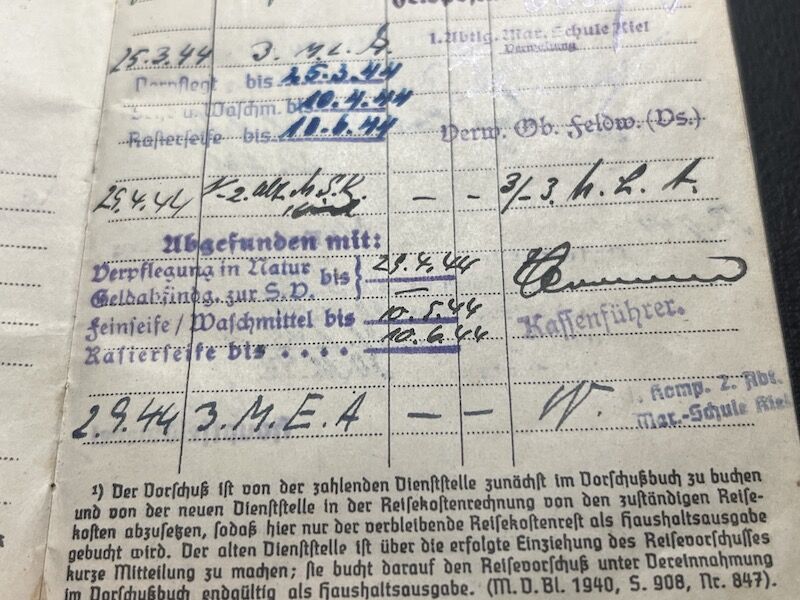 1. Abtlg. Mar. Schule Kiel
Verwaltung
25.3.44
Verpflegt bis 25.3.44
u. Waschm. bis 10.4.44
Rasierseife bis 10.6.44
Verw. Ob. Feldw. (Vs.)
29.4.44 — —
Abgefunden mit:
Verpflegung in Natur bis 29.4.44
Geldabfindg. zur S.V. —
Feinseife/Waschmittel bis 10.5.44
Rasierseife bis .... 10.6.44
Kassenführer.
2.9.44 3. M. E. A — — W. Komp. 2. Abt.
Mar.-Schule Kiel
¹) Der Vorschuß ist von der zahlenden Dienststelle zunächst im Vorschußbuch zu buchen
und von der neuen Dienststelle in der Reisekostenrechnung von den zuständigen Reise-
kosten abzusetzen, sodaß hier nur der verbleibende Reisekostenrest als Haushaltsausgabe
gebucht wird. Der alten Dienststelle ist über die erfolgte Einziehung des Reisevorschusses
kurze Mitteilung zu machen; sie bucht darauf den Reisevorschuß unter Vereinnahmung
im Vorschußbuch endgültig als Haushaltsausgabe. (M. D. Bl. 1940, S. 908, Nr. 847).